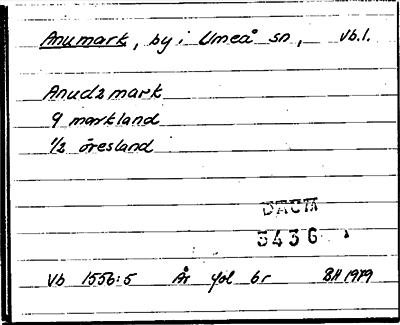 Anumark, by i Umeå sn, Vb.l.
Anudz mark
9 markland
1/2 öresland
DACM
5436
Vb 1556:5 År fol 6r BH 1979